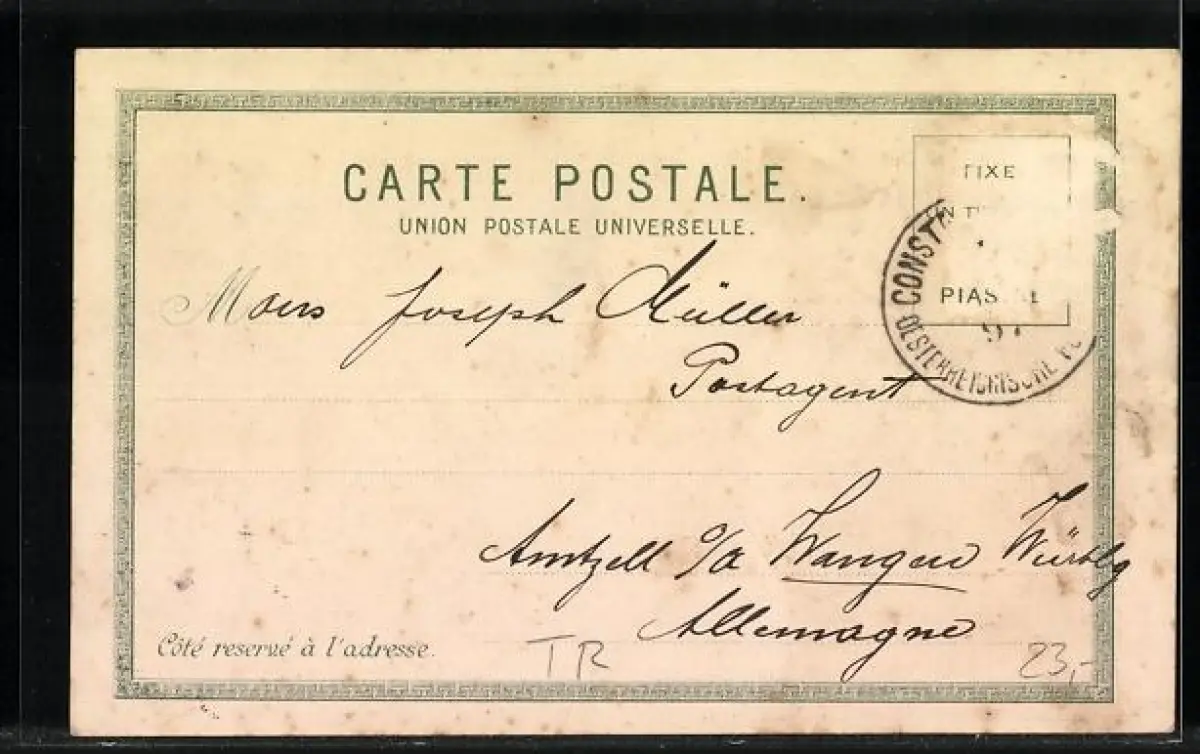 CARTE POSTALE.
UNION POSTALE UNIVERSELLE.
PIAS
CONST
OESTERREICHISCHE
Joseph Müller
Postagent
Amtzell o/a Wangen Württbg
Allemagne
Côté reservé à l'adresse.
TR
23,-